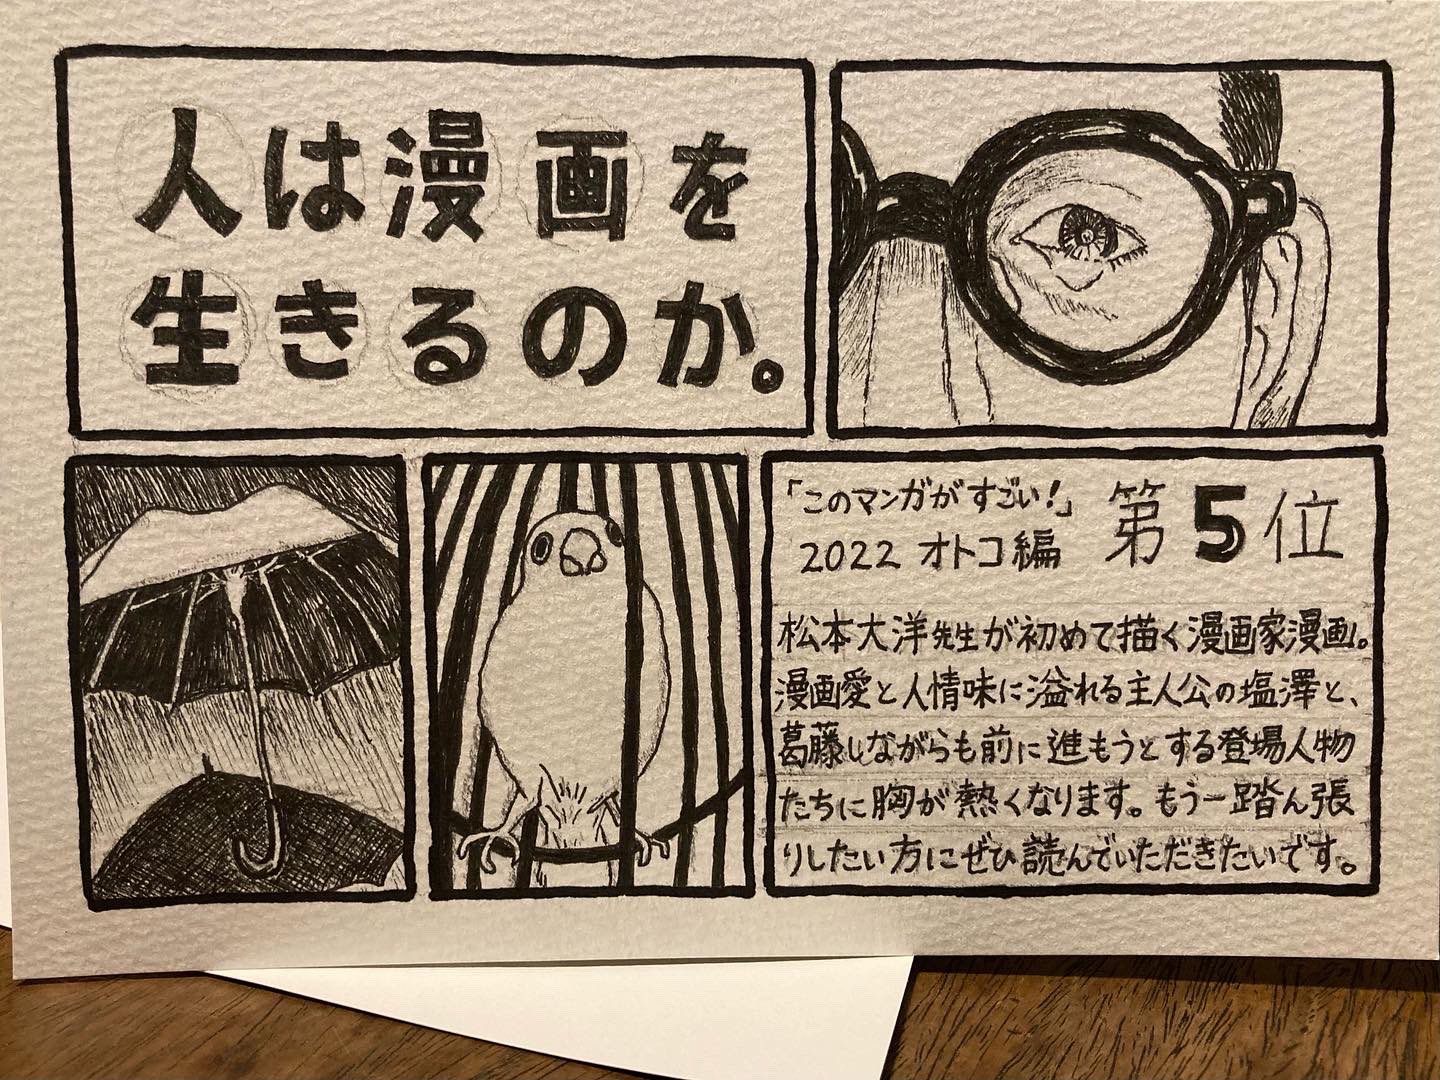 人は漫画を
生きるのか。
「このマンガがすごい!」
2022 オトコ編
第5位
松本大洋先生が初めて描く漫画家漫画。
漫画愛と人情味に溢れる主人公の塩澤と、
葛藤しながらも前に進もうとする登場人物
たちに胸が熱くなります。もう一踏ん張
りしたい方にぜひ読んでいただきたいです。